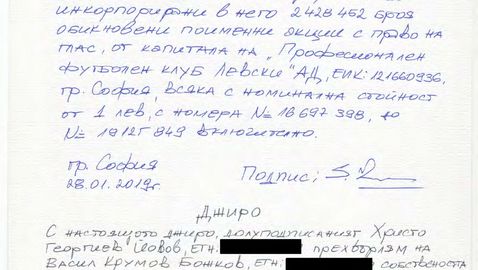 инкорпорирани в него 2 428 452 броя
обикновени поименни акции с право на
глас, от капитала на „Професионален
футболен клуб Левски“ АД, ЕИК: 121660936,
гр. София, всяка с номинална стойност
от 1 лев, с номера № 16 697 398, до
№ 19 125 849 включително.
гр. София
28.01.2019г.
Подпис:
Джиро
С настоящото джиро, долуподписаният Христо
Георгиев Йовов, ЕГН: прехвърлям на
Васил Крумов Божков, ЕГН: собствеността